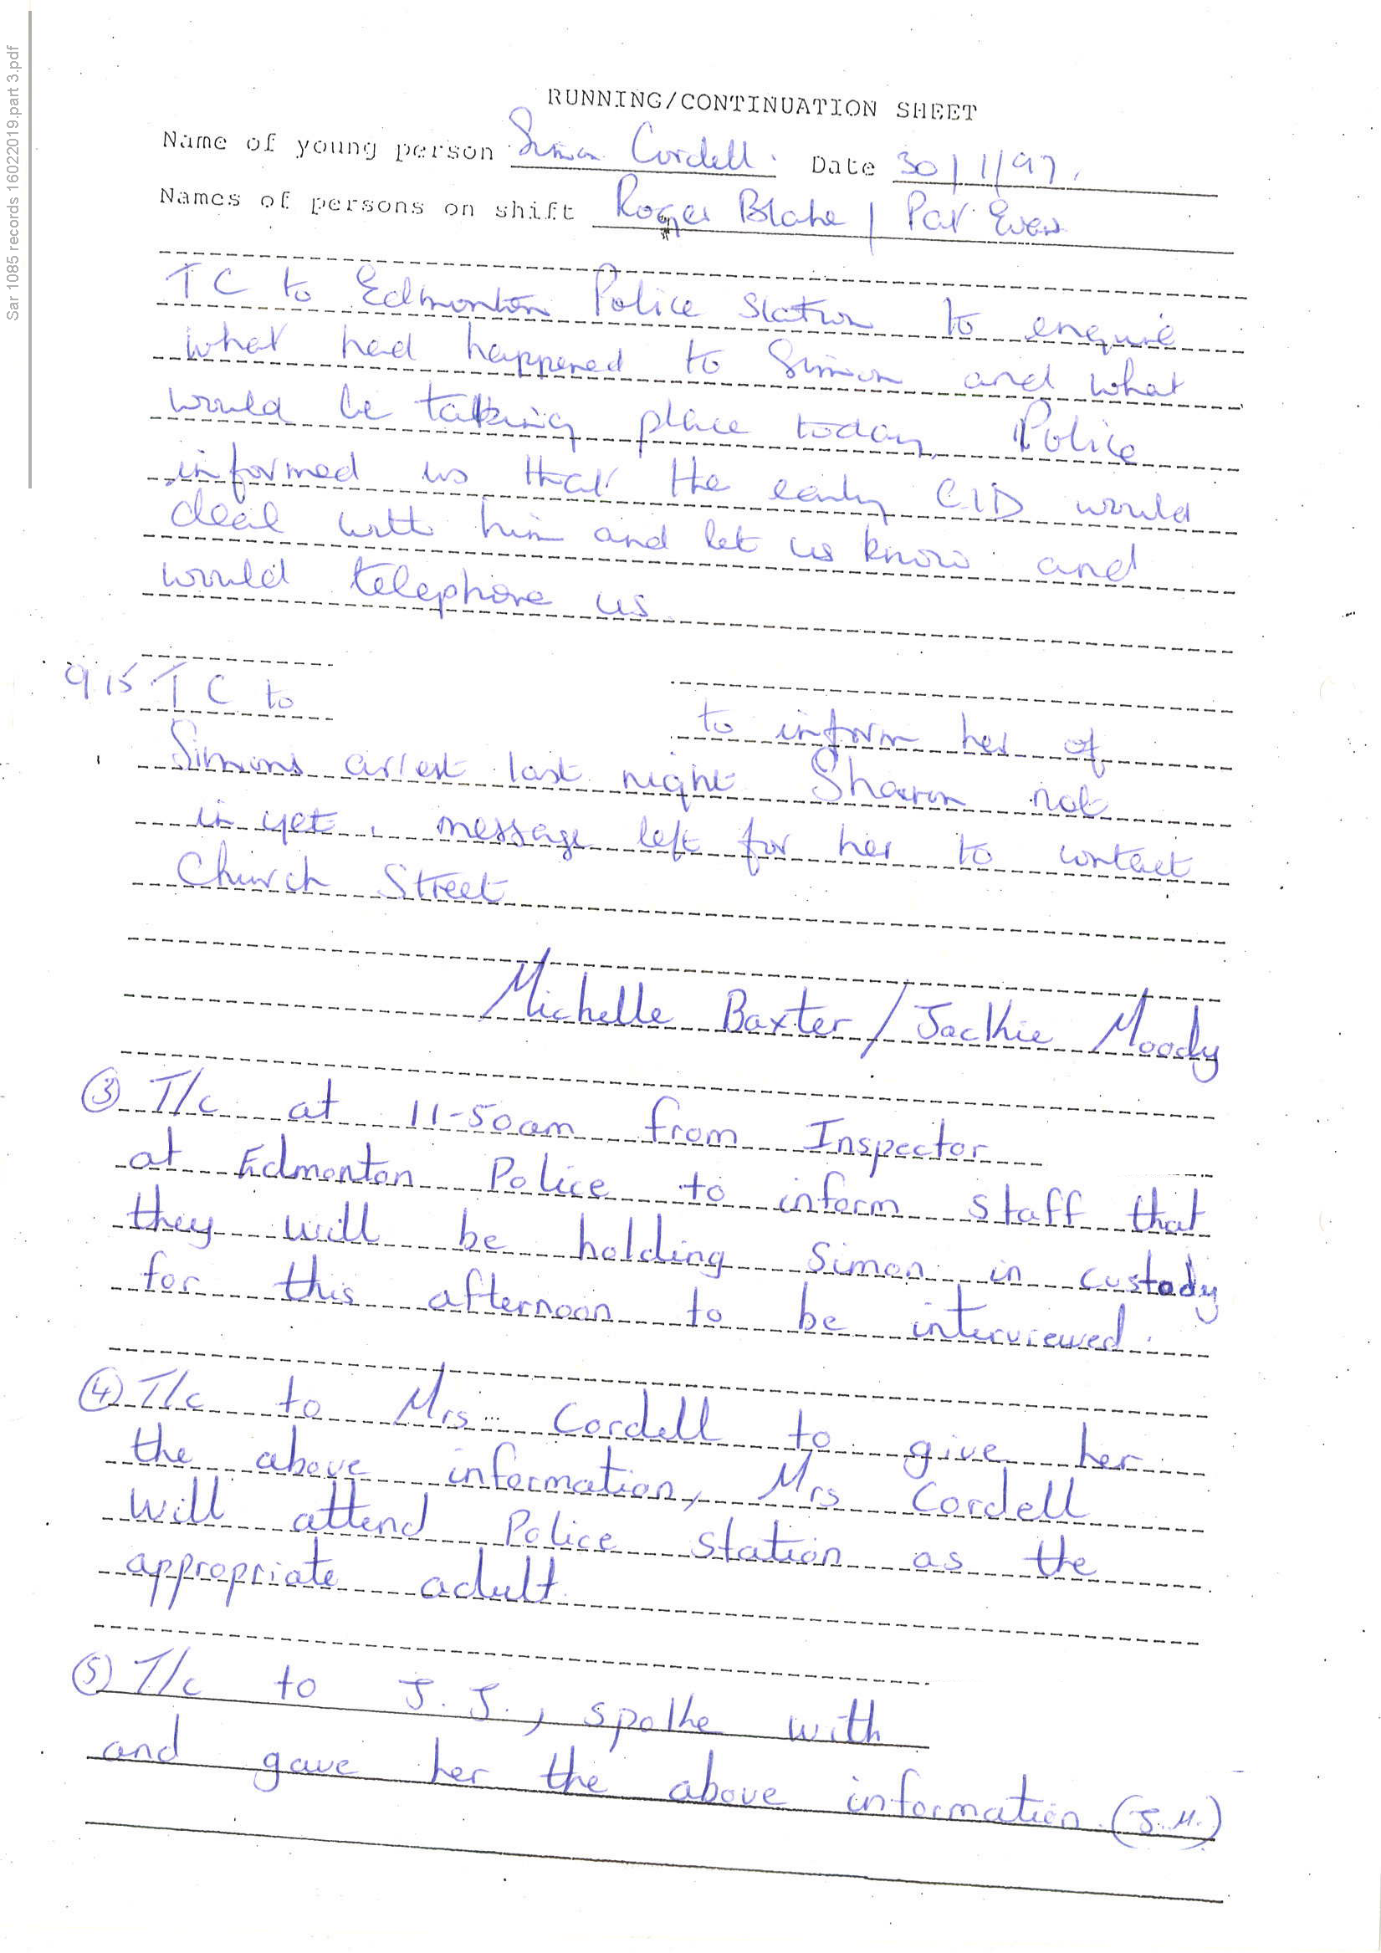 Sar 1085 records 16022019.part 3.pdf
RUNNING/CONTINUATION SHEET
Name of young person Simon Cordell. Date 30/1/97.
Names of persons on shift Roger Blake / Pat Evans
TC to Edmonton Police Station to enquire
what had happened to Simon and what
would be taking place today. Police
informed us that the early CID would
deal with him and let us know and
would telephone us
9 15 TC to
to inform her of
Simons arrest last night Sharon not
in yet, message left for her to contact
Church Street
Michelle Baxter/Jackie Moody
③ T/c at 11-50am from Inspector
at Edmonton Police to inform staff that
they will be holding Simon in custody
for this afternoon to be interviewed.
④ T/c to Mrs Cordell to give her
the above information, Mrs Cordell
will attend Police station as the
appropriate adult.
⑤ T/c to J.J., spoke with
and gave her the above information. (J.M.)